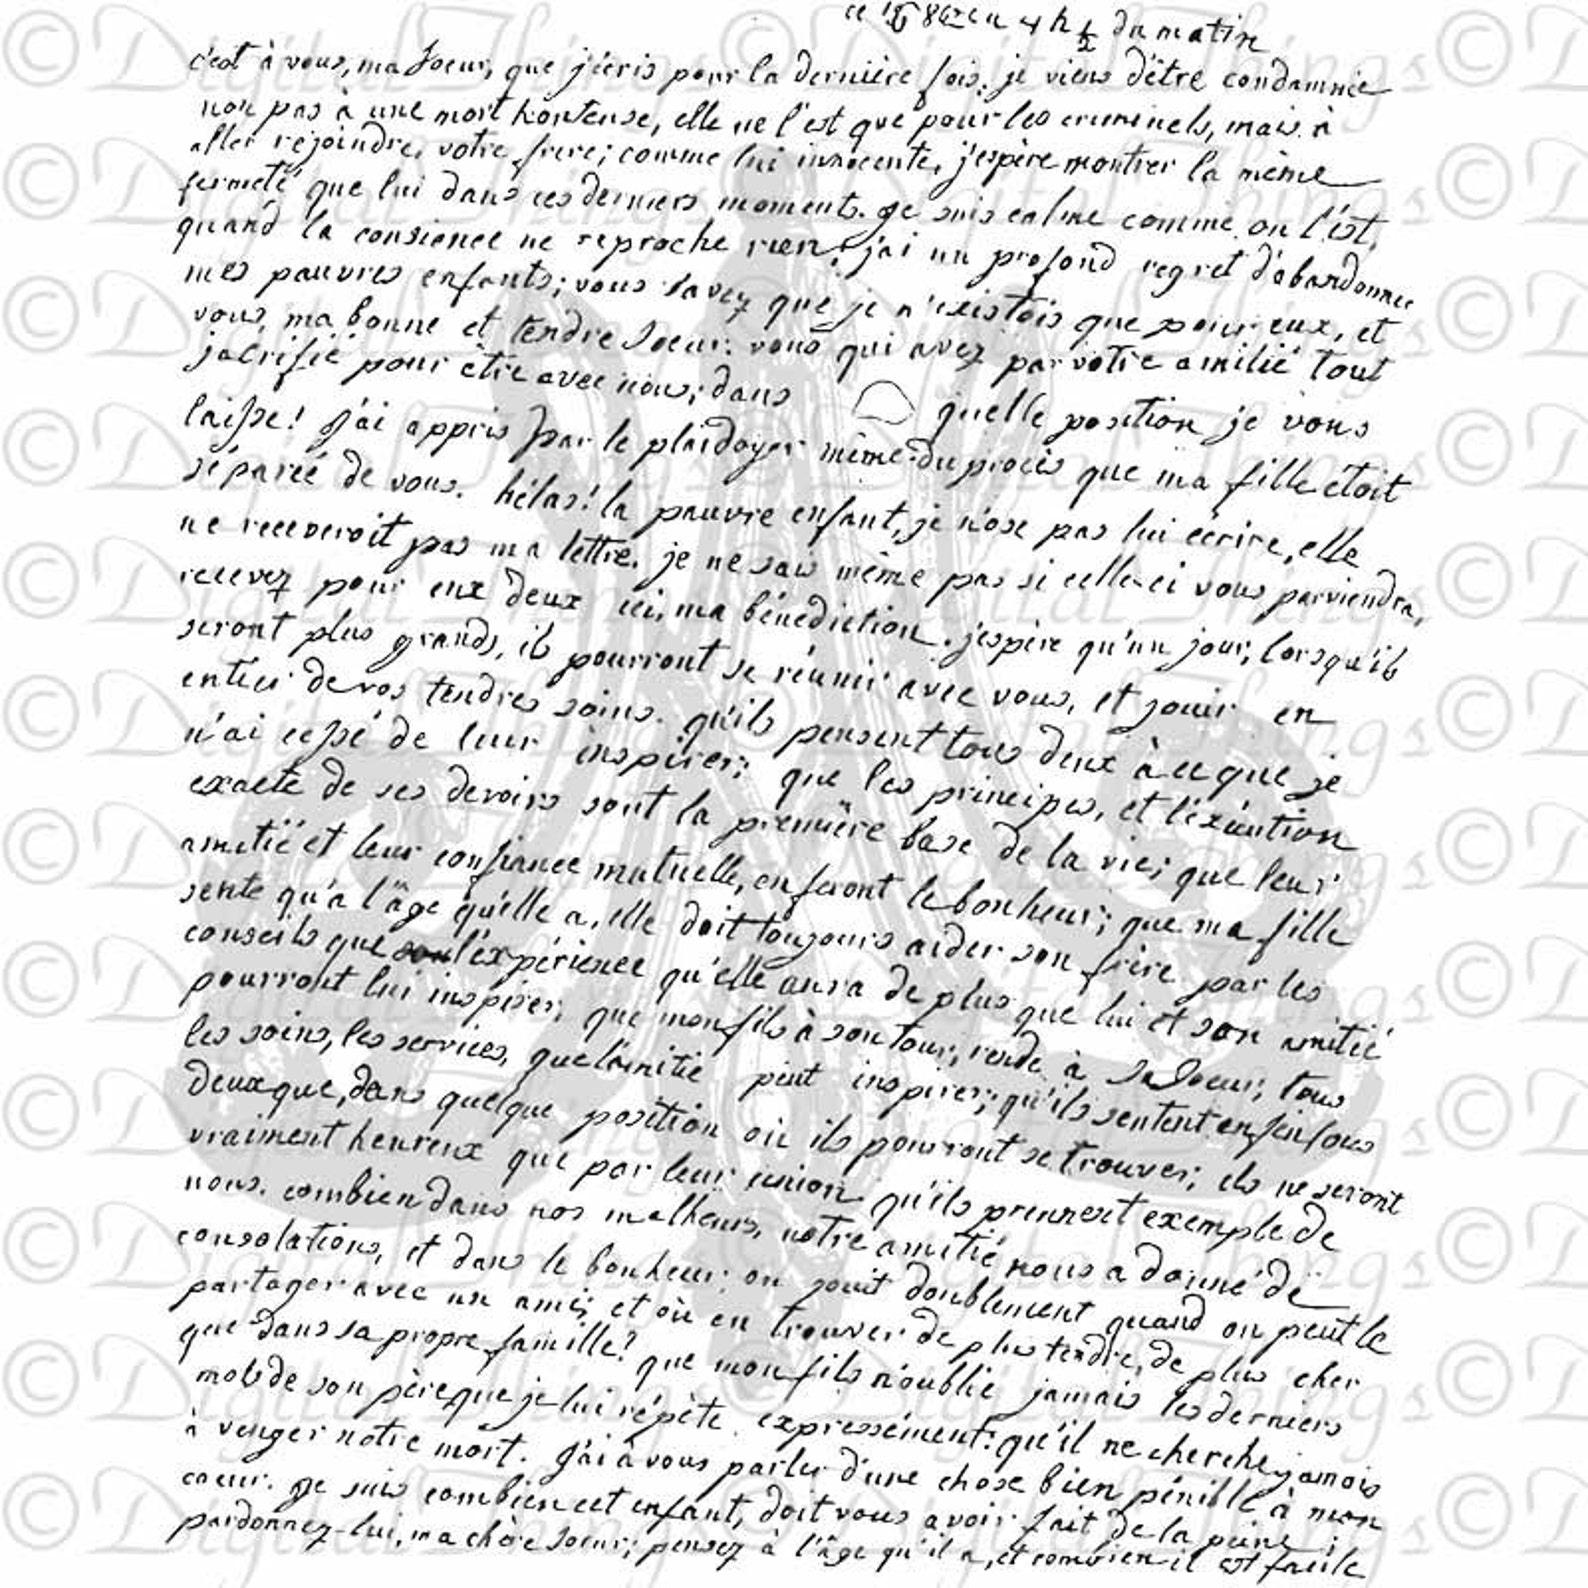 ce 16 8bre a 4 h ½ du matin
c'est à vous, ma Soeur, que j'écris pour la dernière fois; je viens d'être condamnée
non pas à une mort honteuse, elle ne l'est que pour les criminels, mais à
aller rejoindre, votre frere; comme lui innocente, j'espère montrer la même
fermeté que lui dans ces derniers moments. je suis calme comme on l'est,
quand la consience ne reproche rien; j'ai un profond regret d'abandonner
mes pauvres enfants; vous savez que je n'existois que pour eux, et
vous, ma bonne et tendre Soeur: vous qui avez par votre amitié tout
sacrifié pour être avec nous; dans quelle position je vous
laisse! j'ai appris par le plaidoyer même du procès que ma fille étoit
séparée de vous. hélas! la pauvre enfant, je n'ose pas lui écrire, elle
ne receveroit pas ma lettre. je ne sais même pas si celle-ci vous parviendra,
recevez pour eux deux ici, ma bénédiction. j'espère qu'un jour, lorsqu'ils
seront plus grands, ils pourront se réunir avec vous, et jouir en
entier de vos tendres soins. qu'ils pensent tous deux à ce que je
n'ai cessé de leur inspirer; que les principes, et l'éxécution
exacte de ses devoirs sont la première base de la vie; que leur
amitié et leur confiance mutuelle, en feront le bonheur; que ma fille
sente qu'a l'âge qu'elle a, elle doit toujours aider son frère par les
conseils que l'expérience qu'elle aura de plus que lui et son amitié
pourront lui inspirer; que mon fils à son tour, rende à sa Soeur, tous
les soins, les services, que l'amitié peut inspirer; qu'ils sentent enfin tous
deux que, dans quelque position où ils pourront se trouver, ils ne seront
vraiment heureux que par leur union. qu'ils prennent exemple de
nous. combien dans nos malheurs, notre amitié nous a donné de
consolations, et dans le bonheur on jouit doublement quand on peut le
partager avec un ami; et où en trouver de plus tendre, de plus cher
que dans sa propre famille? que mon fils n'oublie jamais les derniers
mots de son père, que je lui répète expressément: qu'il ne cherche jamais
à venger notre mort. j'ai à vous parler d'une chose bien pénible à mon
coeur. je sais combien cet enfant, doit vous avoir fait de la peine;
pardonnez-lui, ma chère Soeur; pensez à l'âge qu'il a, et combien il est facile
© Digital Things